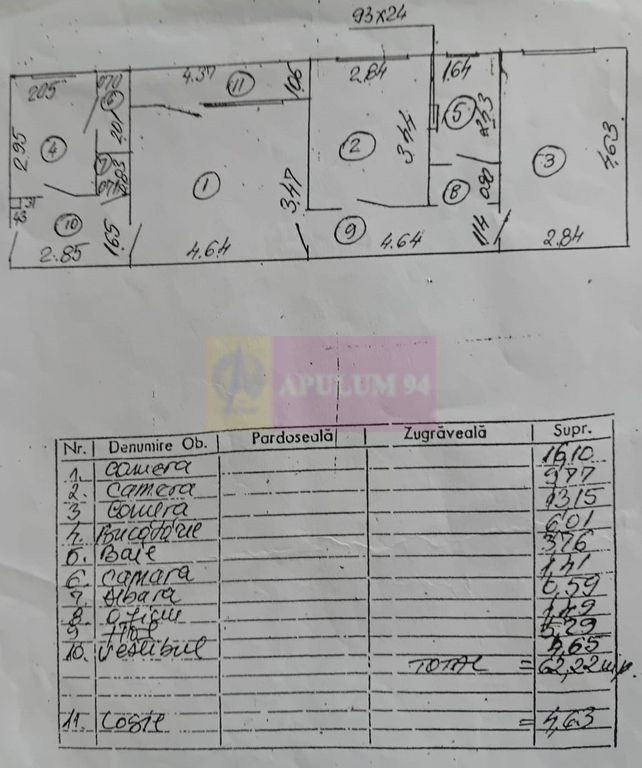 93x24
4.37 (11) 1,06 2,84 1,64
205 070 (6) (5)
2.95 (4) 201 (2) 3,44 (3) 4,63
(7) (1) 3,47 (8) 0,80
(10) 1.65 (9) 1,14
2.85 4.64 4.64 2.84
APULUM 94
Nr. Denumire Ob. Pardoseală Zugrăveală Supr.
1. camera 16,10
2. camera 9,77
3 camera 13,15
4. Bucătărie 6,01
5. Baie 3,76
6. camara 1,41
7. 0,59
8. 1,49
9 Hol 5,29
10. vestibul 4,65
TOTAL = 62,22 m.p.
11. Logie = 4,63